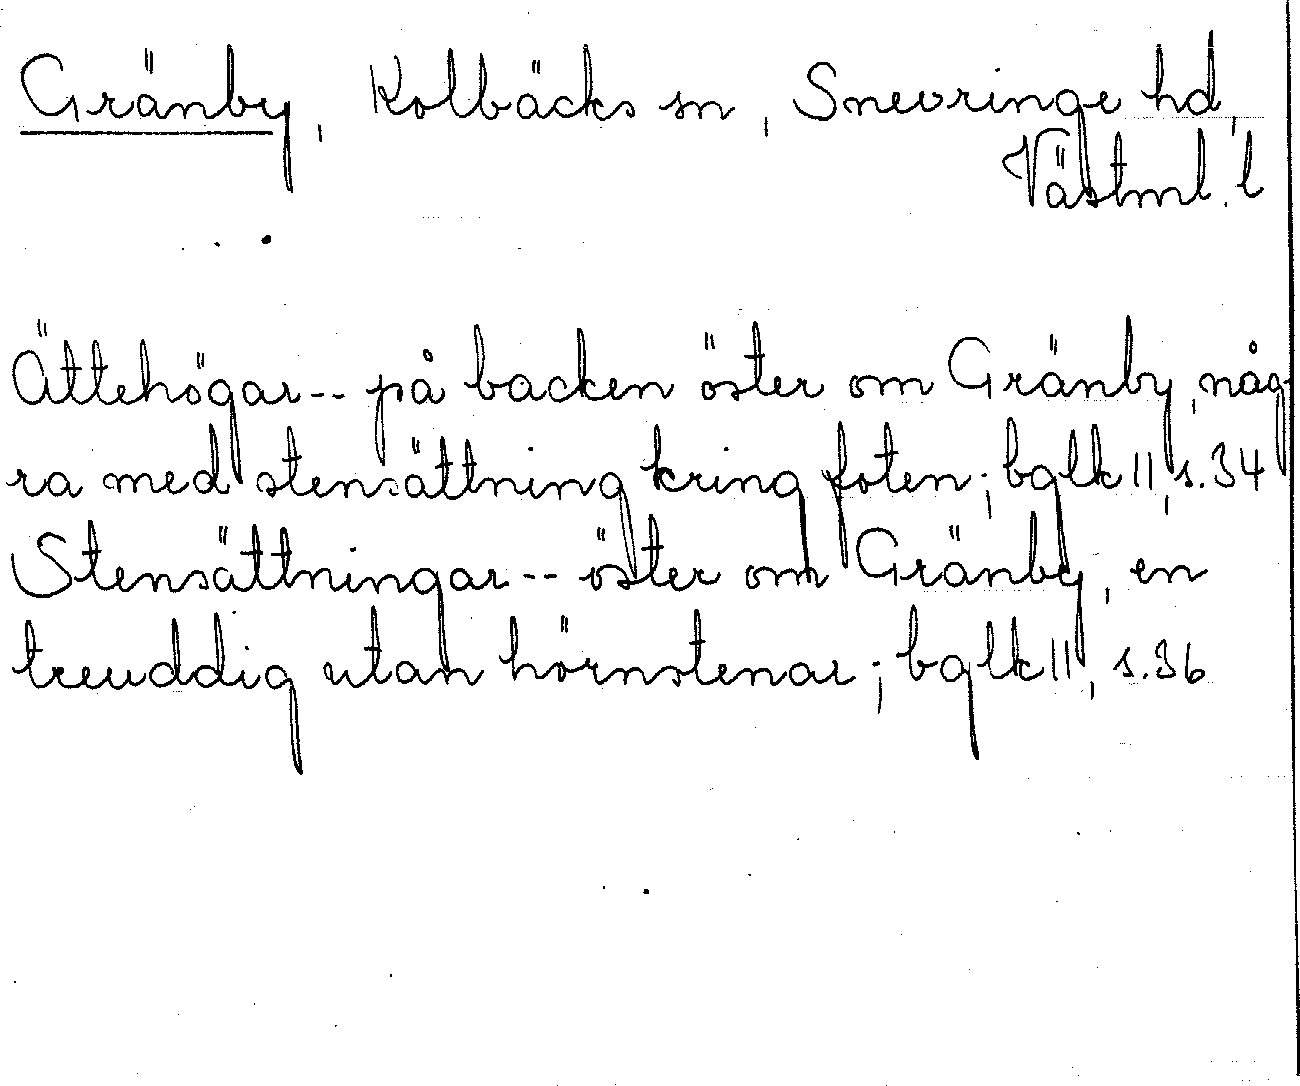 Gränby, Kolbäcks sn, Snevringe hd,
Västml. l
Ättehögar-- på backen öster om Gränby, någ
ra med stensättning kring foten; bglk II, s.34
Stensättningar -- öster om Gränby, en
treuddig utan hörnstenar; bglk II, s.36